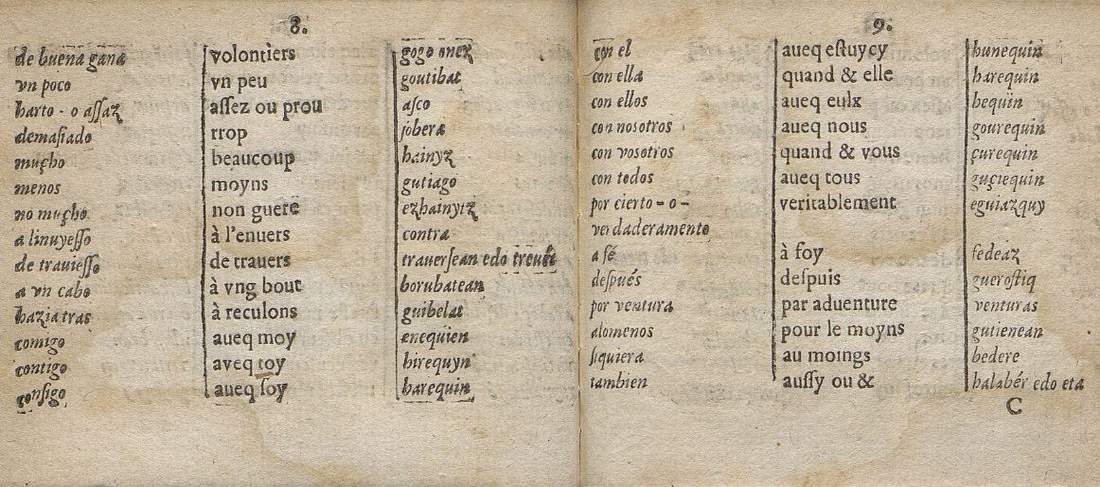 8.
de buena gana volontiers gogo onez
vn poco vn peu goutibat
harto - o assaz assez ou prou asco
demasiado trop jobera
mucho beaucoup hainyz
menos moyns gutiago
no mucho non guere ezhainytz
a linuyesso à l'enuers contra
de trauiesso de trauers trauersean edo treubes
a vn cabo à vng bout borubatean
hazia tras à reculons guibelat
comigo aueq moy enequien
contigo aveq toy hirequyn
consigo aueq soy harequin
9.
con el aueq estuycy hunequin
con ella quand & elle harequin
con ellos aueq eulx hequin
con nosotros aueq nous gourequin
con vosotros quand & vous çurequin
con todos aueq tous guçiequin
por cierto - o - veritablement eguiazquy
verdaderamente
a fé à foy fedeaz
después despuis guerostiq
por ventura par aduenture venturas
alomenos pour le moyns gutienean
siquiera au moings bedere
tambien aussy ou & halabér edo eta
C